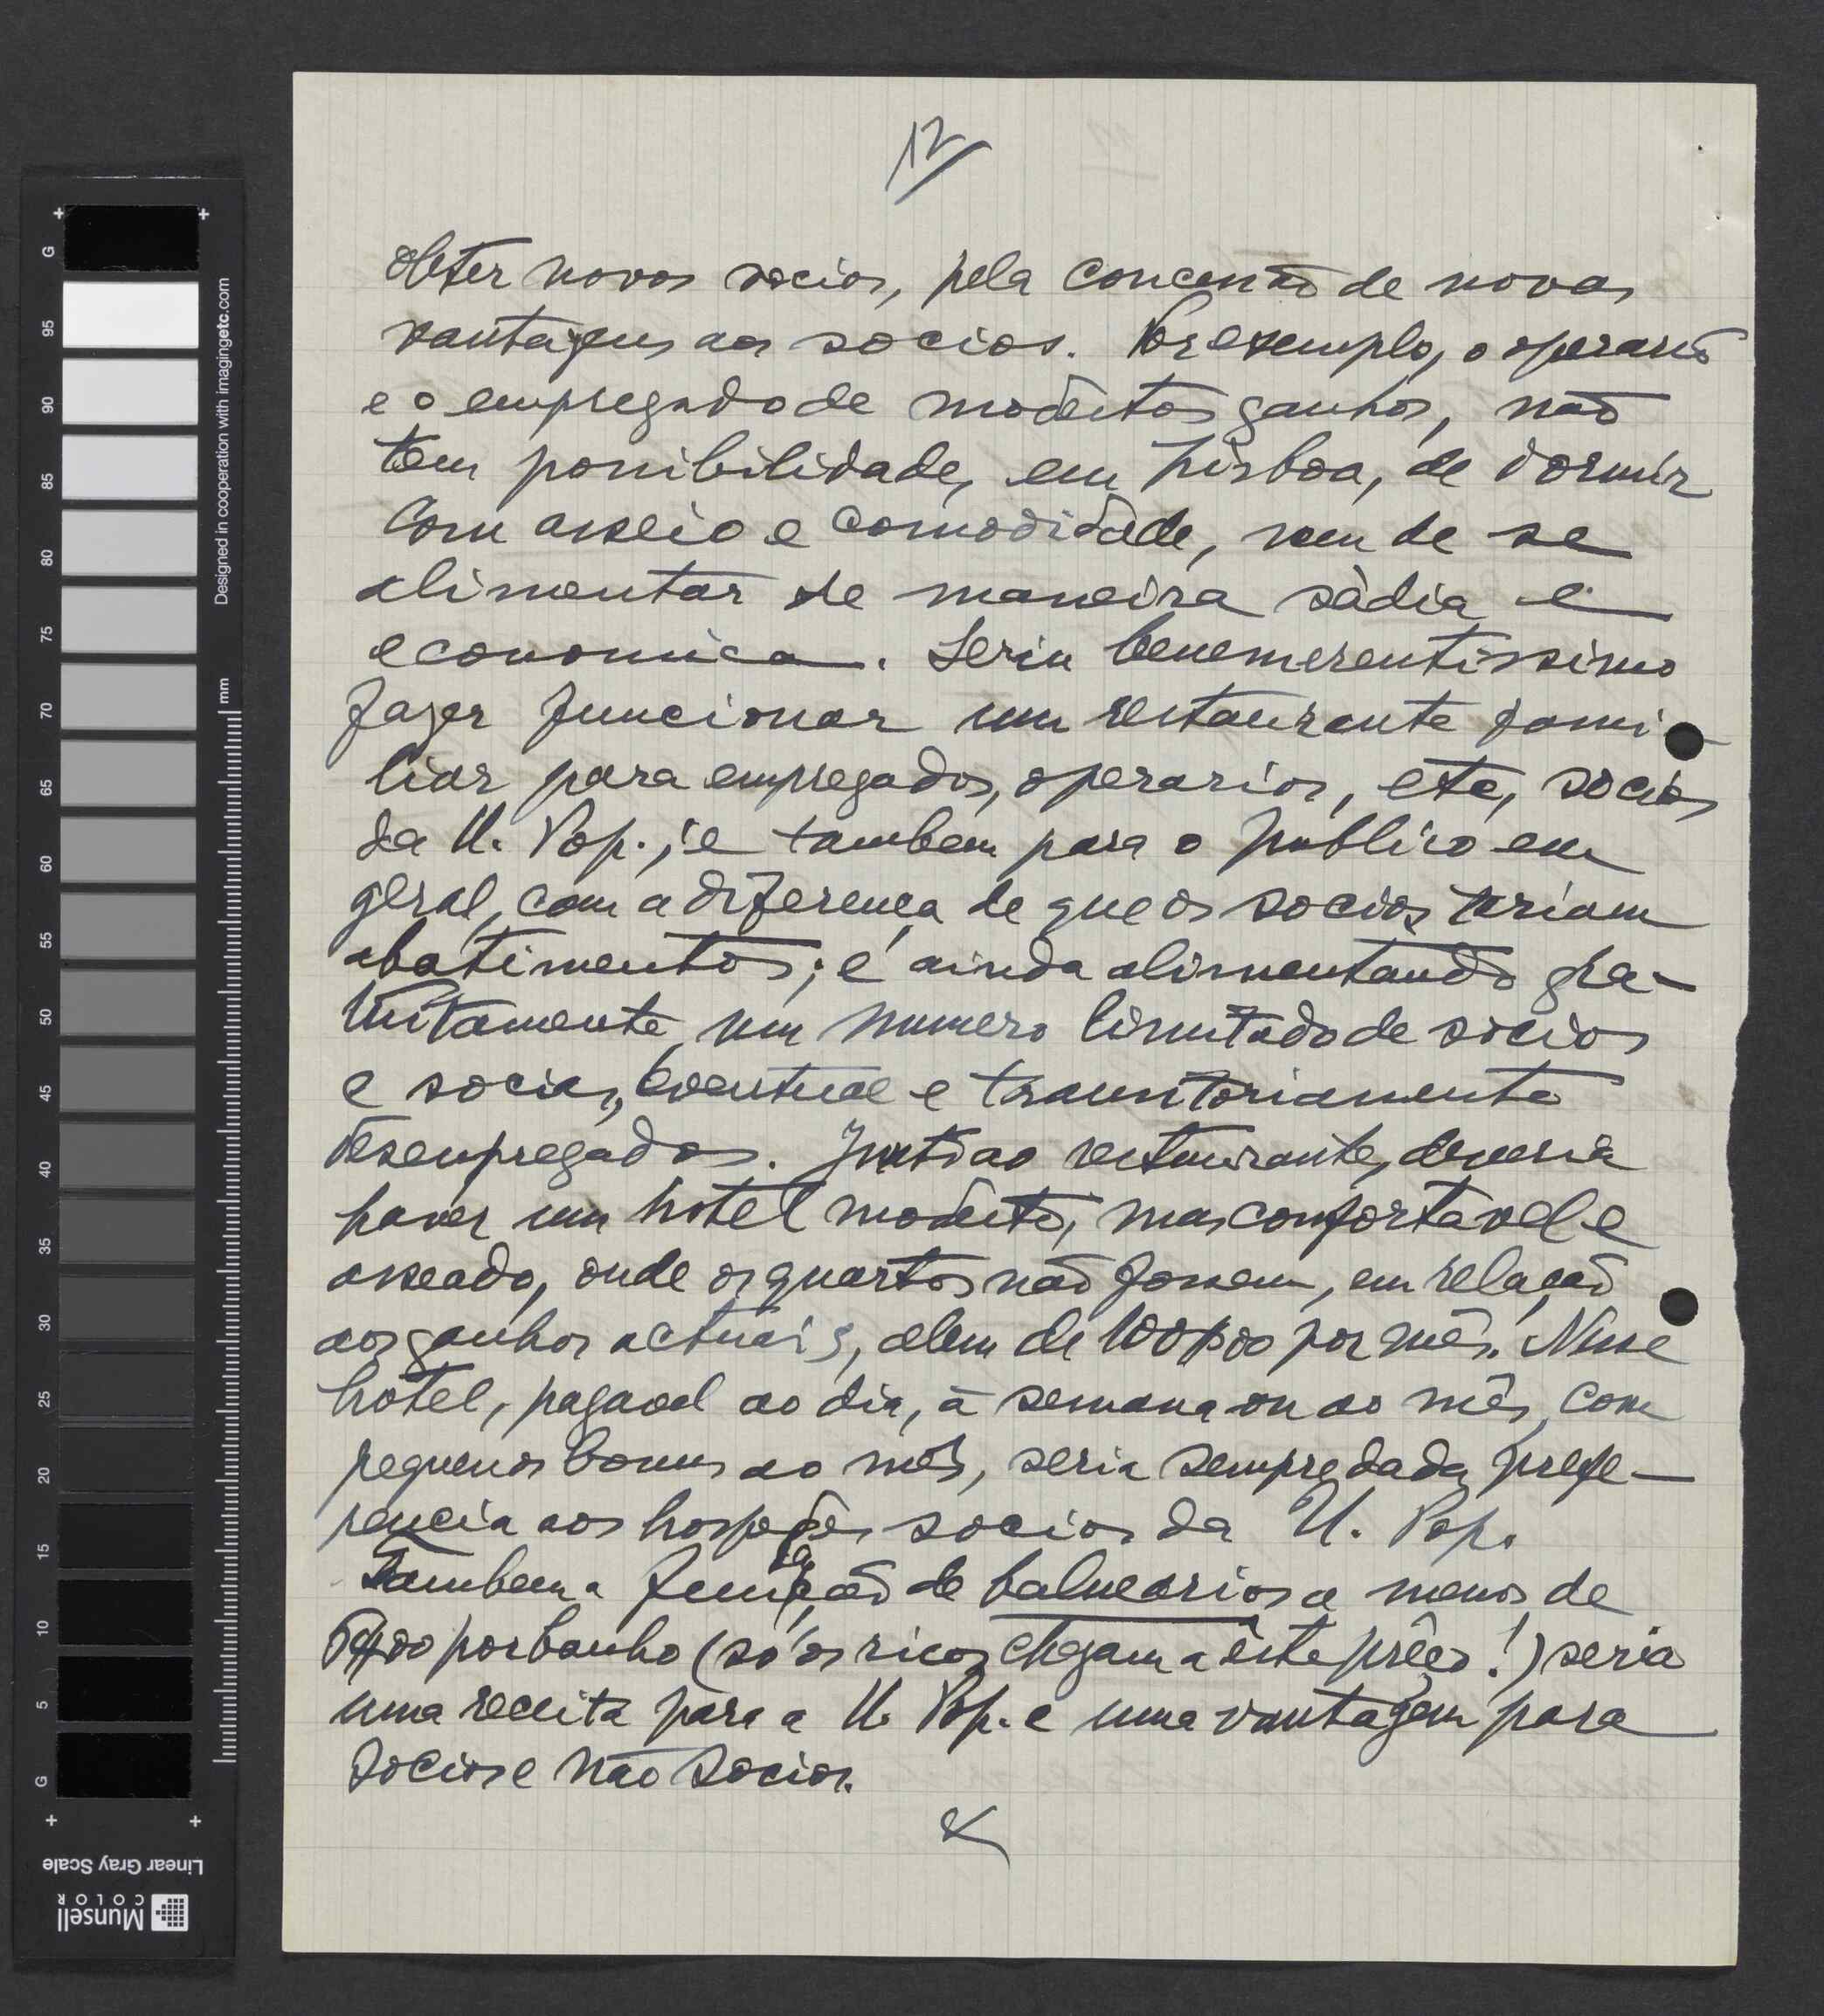 12
obter novos socios, pela concessão de novas
vantagens aos socios. Por exemplo, o operario
e o empregado de modestos ganhos, não
tem possibilidade, em Lisboa, de dormir
com asseio e comodidade, nem de se
alimentar de maneira sàdia e
economica. Seria benemerentissimo
fazer funcionar um restaurante fami-
liar para empregados, operarios, etc, socios
da U. Pop.; e tambem para o publico em
geral, com a diferença de que os socios teriam
abatimentos; e ainda alimentando gra-
tuitamente um numero limitado de socios
e socias, eventual e transitoriamente
desempregados. Junto ao restaurante, deveria
haver um hotel modesto, mas confortavel e
asseado, onde os quartos não fossem, em relação
aos ganhos actuais, alem de 100$00 por mês. Nesse
hotel, pagavel ao dia, à semana ou ao mês, com
pequenos bonus ao mês, seria sempre dada prefe-
rencia aos hospedes socios da U. Pop.
Tambem a fundação de balnearios a menos de
5$00 por banho (só os ricos chegam a êste prêço!) seria
uma receita para a U. Pop. e uma vantagem para
socios e não socios.
G 95 90 85 80 75 70 65 60 55 50 45 40 35 30 25 20 15 10 5 G
Designed in cooperation with imagingetc.com
mm
Linear Gray Scale
Munsell
COLOR